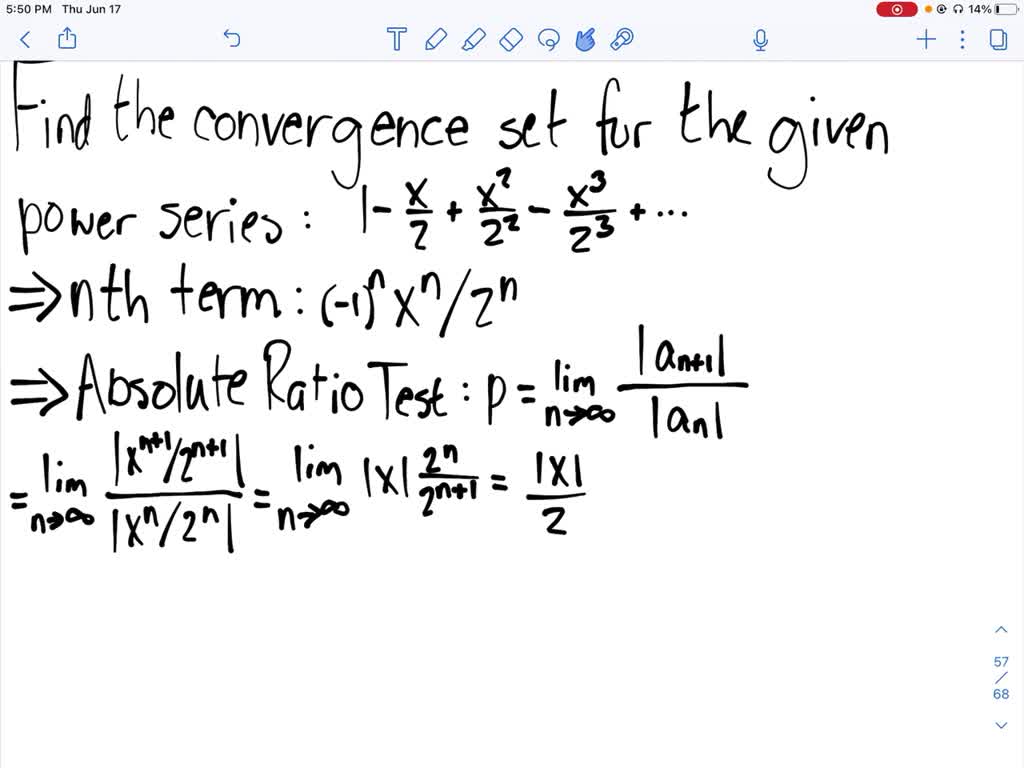 5:50 PM Thu Jun 17 14%
Find the convergence set for the given
power series: 1 - x/2 + x²/2² - x³/2³ + ...
⇒ nth term: (-1)ⁿ xⁿ/2ⁿ
⇒ Absolute Ratio Test: p = lim n→∞ |aₙ₊₁| / |aₙ|
= lim n→∞ |xⁿ⁺¹/2ⁿ⁺¹| / |xⁿ/2ⁿ| = lim n→∞ |x| 2ⁿ/2ⁿ⁺¹ = |x|/2
57
/
68